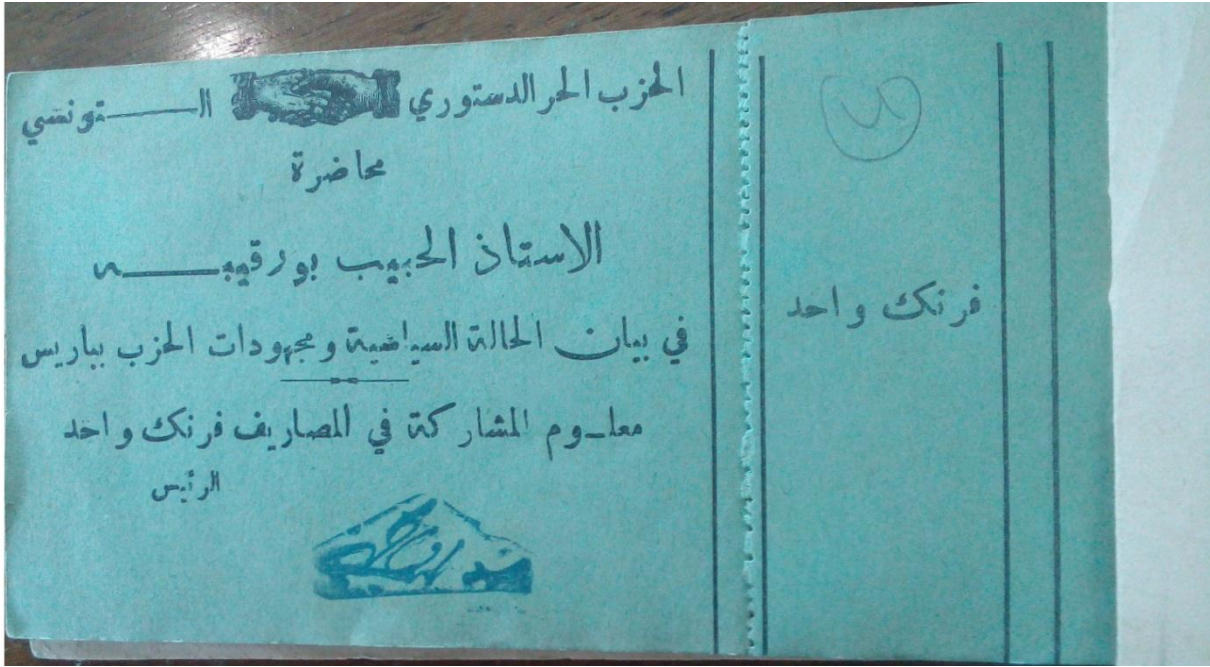 الحزب الحر الدستوري التونسي
محاضرة
الاستاذ الحبيب بورقيبه
في بيان الحالة السياسية ومجهودات الحزب بباريس
معلوم المشاركة في المصاريف فرنك واحد
الرئيس
فرنك واحد